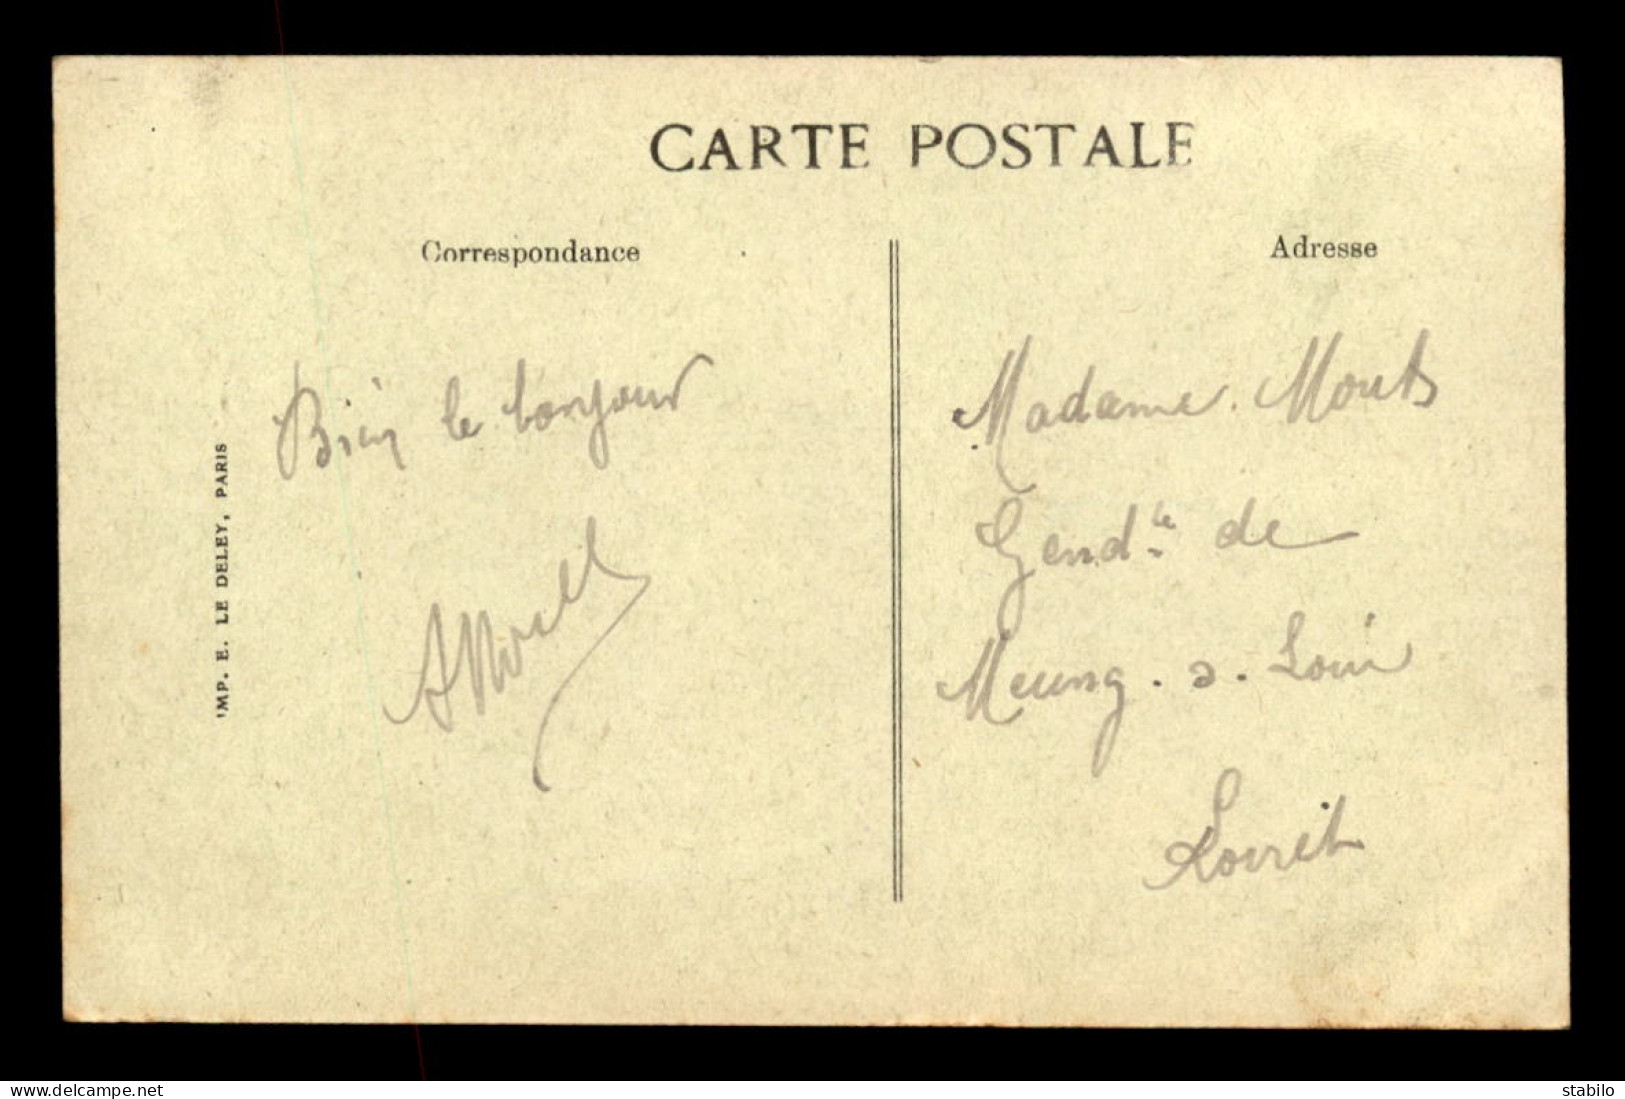 CARTE POSTALE
Correspondance
Adresse
IMP. E. LE DELEY, PARIS
Bien le bonjour
Madame
Gend.ie de
Meung. s. Loire
Loiret
www.delcampe.net
stabilo